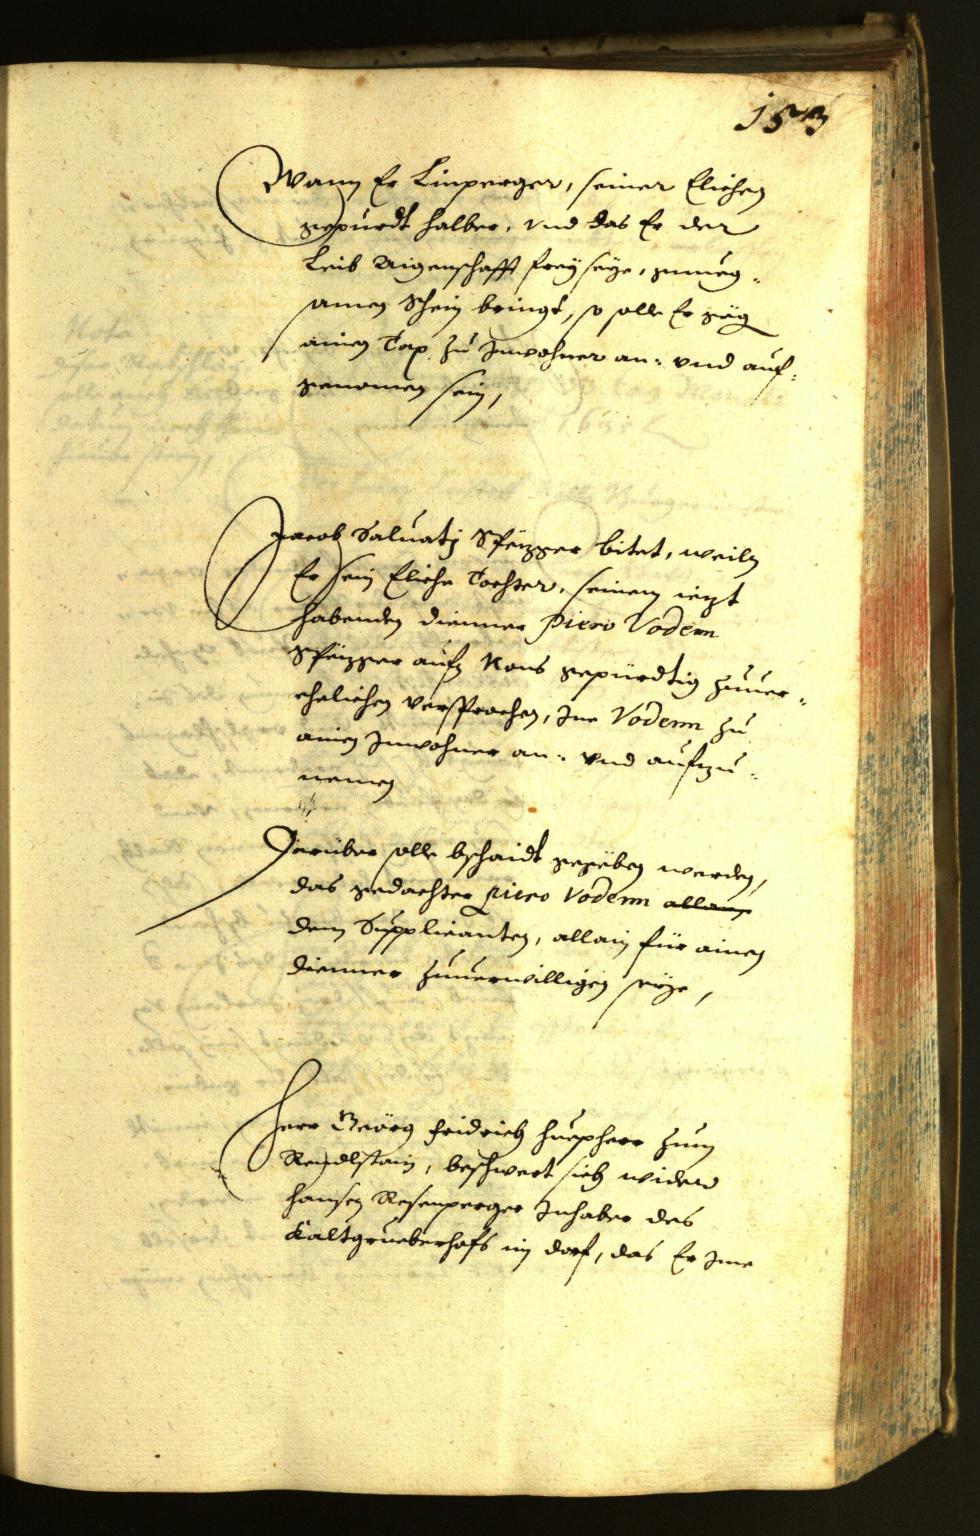 153
Wann Er Linperger, seiner Elichen
gepurdt halber, vnd das Er der
Leib Aigenschafft frey seye, genueg-
samen Schein bringt, so solle Er
ainen Tag zu Inwohner an: vnd auf-
genomen sein,
Jacob Saluatj bitet, weiln
Er sein Eliche Tochter, seinem iezt
habenden diener Piero Vodem
aufm Nons gepürdtig zuuer-
ehelichen versprochen, Ine Vodenn zu
ainen Inwohner an: vnd aufzu-
nemen
Darüber solle bschaidt gegeben werden,
das gedachter Piero Vodenn allain
dem Supplicanten, allain für ainen
dienner zuuerwilligen seye,
Herr Geörg Fridrich zum
Rendlstain, beschwert sich wider
Hansen Rosenperger Inhaber des
Kaltgrueberhofs im dorf, das Er Ime